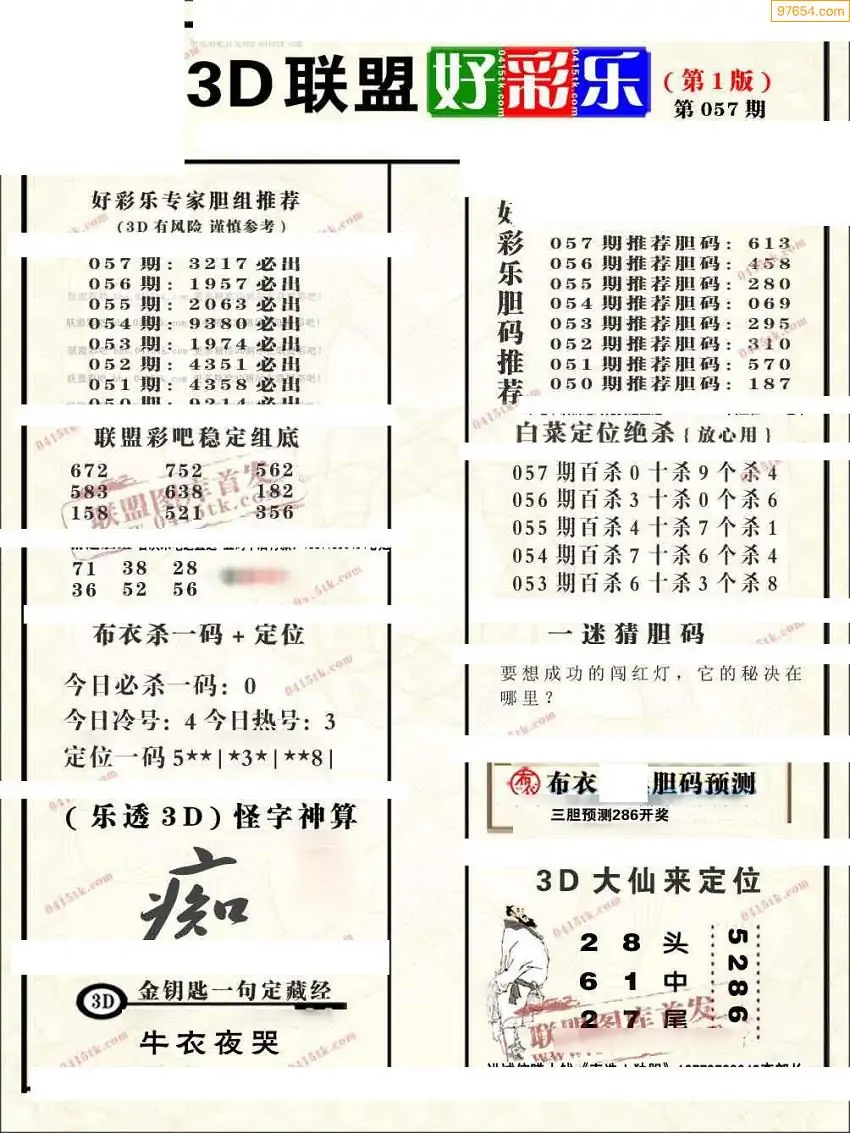 97654.com
3D联盟好彩乐(第1版)
第057期
好彩乐专家胆组推荐
(3D有风险 谨慎参考)
057期: 3217必出
056期: 1957必出
055期: 2063必出
054期: 9380必出
053期: 1974必出
052期: 4351必出
051期: 4358必出
联盟彩吧稳定组底
672 752 562
583 638 182
158 521 356
联盟图库首发
71 38 28
36 52 56
布衣杀一码+定位
今日必杀一码: 0
今日冷号: 4 今日热号: 3
定位一码5**|*3*|**8|
(乐透3D)怪字神算
痴
3D 金钥匙一句定藏经
牛衣夜哭
好彩乐胆码推荐
057期推荐胆码: 613
056期推荐胆码: 458
055期推荐胆码: 280
054期推荐胆码: 069
053期推荐胆码: 295
052期推荐胆码: 310
051期推荐胆码: 570
050期推荐胆码: 187
白菜定位绝杀{放心用}
057期百杀0十杀9个杀4
056期百杀3十杀0个杀6
055期百杀4十杀7个杀1
054期百杀7十杀6个杀4
053期百杀6十杀3个杀8
一迷猜胆码
要想成功的闯红灯，它的秘决在
哪里？
布衣 胆码预测
三胆预测286开奖
3D大仙来定位
2 8 头
6 1 中
2 7 尾
5286
联盟图库首发
0415tk.com